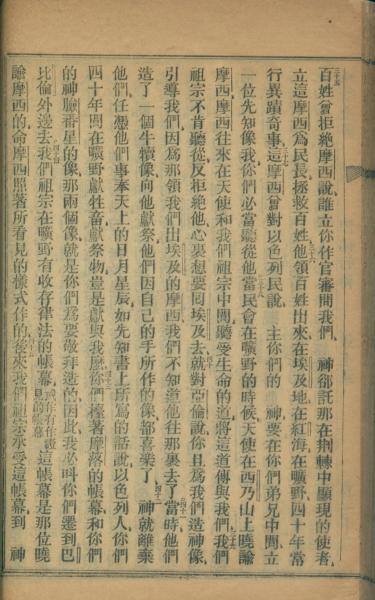 百姓曾拒絶摩西說、誰立你作官審問我們、 神卻託那在荆棘中顯現的使者、
三十五
立這摩西爲民長、拯救百姓、他領百姓出來、在埃及地在紅海在曠野四十年、常
三十六
行異蹟奇事、這摩西曾對以色列民說、 主你們的 神要在你們弟兄中間立
三十七
一位先知像我、你們必當聽從他、當民會在曠野的時候、天使在西乃山上曉諭
三十八
摩西、摩西往來在天使和我們祖宗中間、聽受生命的道、將這道傳與我們、我們
三十九
祖宗不肯聽從、反拒絶他、心裏想要囘埃及去、就對亞倫說、你且爲我們造神像、
四十
引導我們、因爲那領我們出埃及的摩西、我們不知道他往那裏去了、當時他們
四十一
造了一個牛犢像、向他獻祭、他們因自己的手所作的像、都喜樂了、 神就離棄
四十二
他們、任憑他們事奉天上的日月星辰、如先知書上所寫的話說、以色列人、你們
四十年間在曠野獻牲畜獻祭物、豈是獻與我麼、你們擡著摩落的帳幕、和你們
四十三
的神臉番星的像、那兩個像就是你們爲要敬拜造的、因此我必叫你們遷到巴
比倫外邊去、我們祖宗在曠野有收存律法的帳幕、這帳幕是那位曉
四十四
或作有作證見的帳幕
諭摩西的、命摩西照著所看見的樣式作的、後來我們祖宗承受這帳幕、到 神
四十五